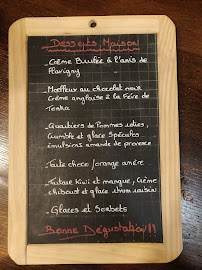 Desserts Maison
- Crème Brulée à l'anis de
Flavigny
- Moelleux au chocolat noir
Crème anglaise à la Fève de
Tonka
- Quartiers de Pommes rôties,
Crumble et glace Spéculos
émulsions amande de provence
- Tarte choco/orange amère
- Tartare Kiwi et mangue, Crème
chiboust et glace rhum raisin
- Glaces et Sorbets
Bonne Dégustation !!